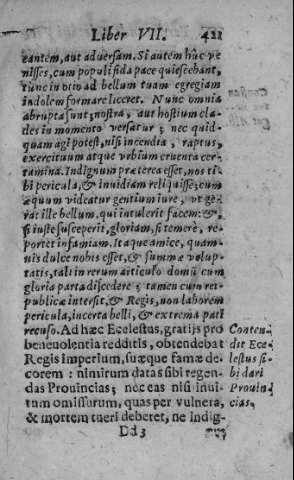 Liber VII. 421
eantem, aut adversam. Si autem huc ve
nisses, cum populi fida pace quiescebant,
tunc in otio ad bellum tuam egregiam
indolem formare liceret. Nunc omnia
abrupta sunt; nostra, aut hostium cla-
des in momento versatur; nec quid-
quam agi potest, nisi incendia, raptus,
exercituum atque urbium cruenta cer-
tamina. Indignum præterea esset, nos ti
bi pericula, & invidiam reliquisse; cum
æquum videatur gentium iure, vt ge-
rat ille bellum, qui intulerit facem: &,
si iuste susceperit, gloriam, si temerè, re-
portet infamiam. Itaque amice, quam-
uis dulce nobis esset, & summæ volup-
tatis, tali in rerum articulo domũ cum
gloria parta discedere; tamen cum rei-
publicæ intersit, & Regis, non laborem
pericula, incerta belli, & extrema pati
recuso. Ad hæc Ecelestus, gratijs pro
benevolentia redditis, obtendebat
Regis imperium, suæque famæ de-
corem: nimirum datas sibi regen-
das Provincias; nec eas nisi inui-
tum omissurum, quas per vulnera,
& mortem tueri deberet, ne indig-
Dd3
Conten-
dit Ece-
lestus si-
bi dari
Provin-
cias.